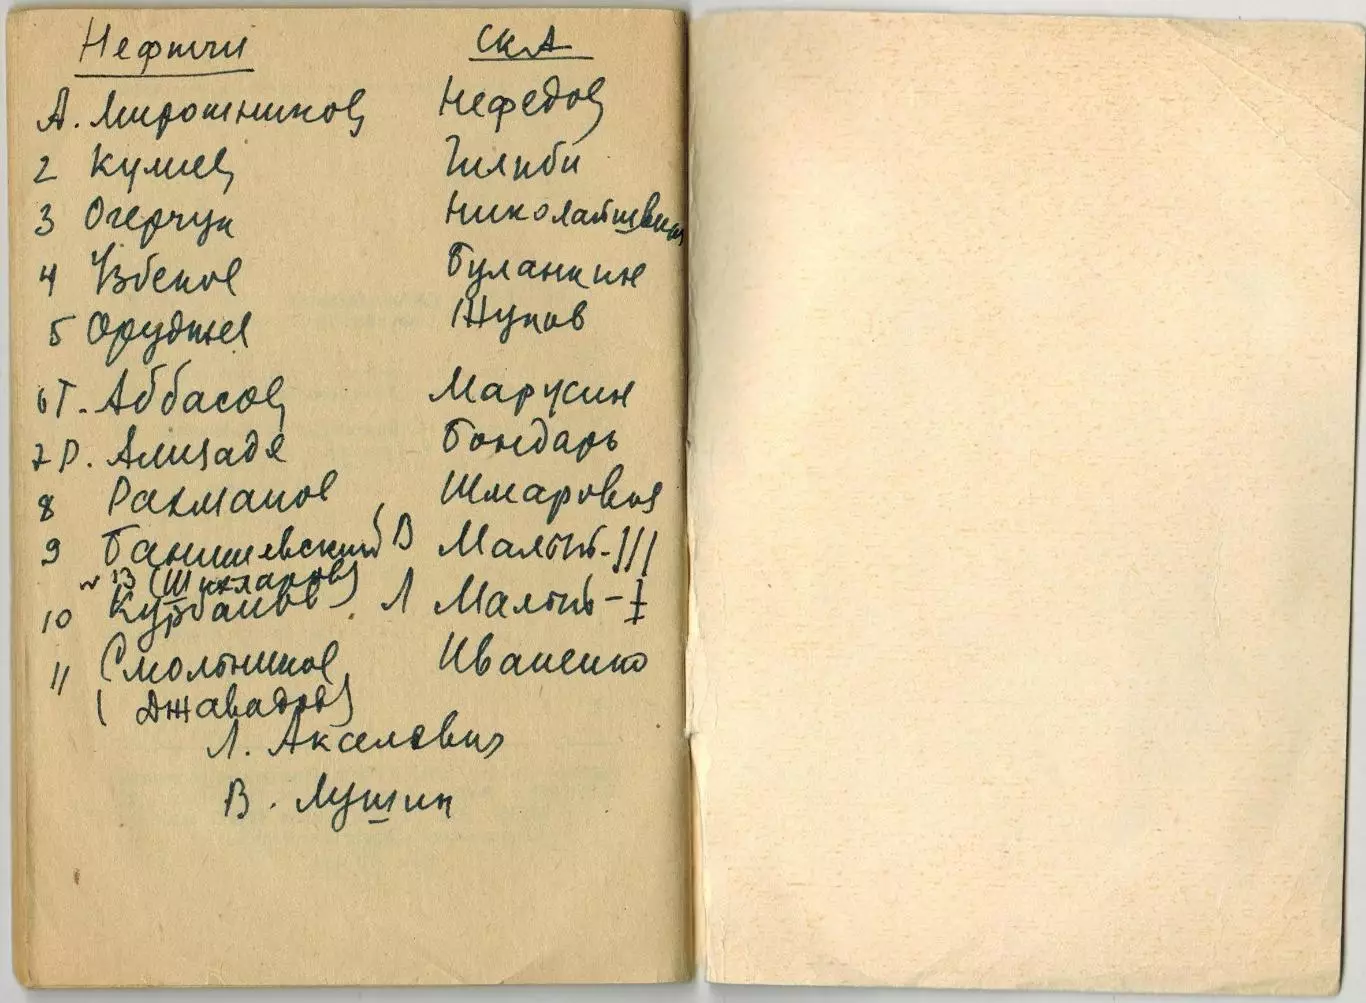 Нефтчи СКА
А. Мирошников Нефедов
2 Кулиев Гилиби
3 Огерчук Николайшвили
4 Узбеков Буланкин
5 Оруджев Жуков
6 Т. Аббасов Марусин
7 Р. Ализадя Бондарь
8 Рахманов Шмаровоз
9 Банишевский В Малыть-III
13 (Шихларов)
10 Курбанов Л Малыть-I
11 Смольников Иваненко
(Джавадов)
Л. Акселевич
В. Лушин